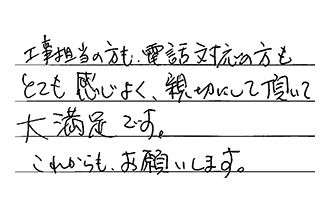 工事担当の方も、電話対応の方も
とても感じよく、親切にして頂いて
大満足です。
これからも、お願いします。